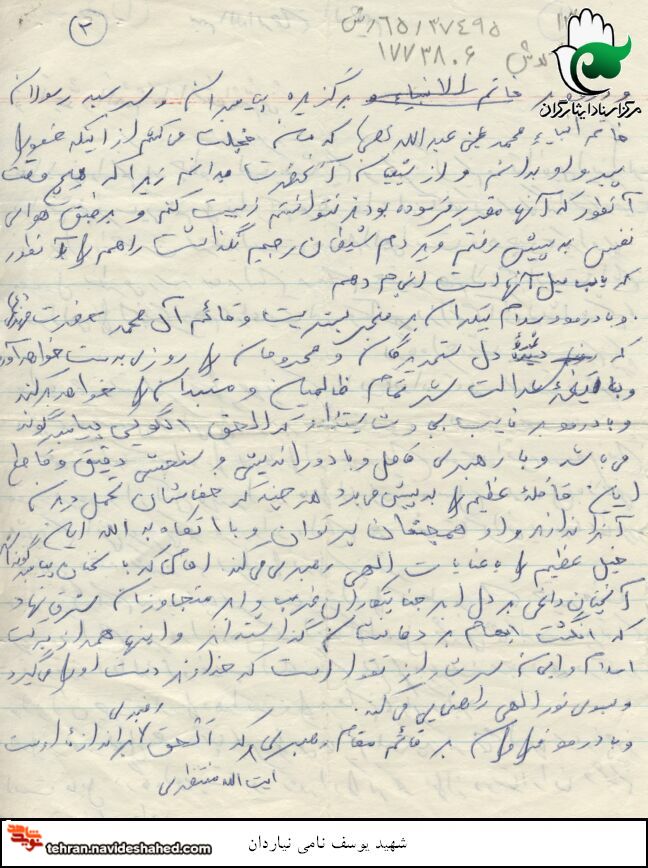 ۳
۶۵/۳۷۴۹۵
۱۷۷۳۸۰۶
مرکز اسناد ایثارگران
خاتم الانبیاء برگزیده پیامبران و سرسید رسولان
خاتم انبیاء محمد بن عبدالله که من خجلت می‌کشم از اینکه خود را
پیرو او بدانم و از شیعیان آنحضرت بدانم زیرا که هیچ وقت
آنطور که آنها مقرر فرموده بودند نتوانستم زیست کنم و بر طبق هوای
نفس به پیش رفتم و یک دم شیطان رجیم نگذاشت راهم را آنطور
که باب میل آنها است انجام دهم
و با درود و سلام بیکران بر منجی بشریت و قائم آل محمد حضرت مهدی
که دل ستمدیدگان و محرومان را روزی بدست خواهد آورد
و با قبضهٔ عدالت شر تمام ظالمان و مستبدان را خواهد کند
و با درود بر نایب بر حقش که الحق الگویی پیامبرگونه
می باشد و با رهبری کامل و با دوراندیشی و سنجشی دقیق و قاطع
این قافلهٔ عظیم را به پیش می‌برد هر چند که خفاشان تحمل دیدن
آنرا ندارند و او همچنان پر توان و با اتکاء به الله این
خیل عظیم را با عنایات الهی رهبری می‌کند امامی که با سخنان پیامبرگونه‌اش
آنچنان داغی بر دل ابر جنایتکاران غرب و ابر متجاوزان شرق نهاد
که انگشت ابهام بر دهانشان گذاشته‌اند و اینها همه از برکت
اسلام و ایمان سرشار از تقوا است که خداوند دست او را می‌گیرد
و بسوی نور الهی راهنمایی می‌کند.
و با درود فراوان بر قائم مقام رهبری که الحق رهبری برازندهٔ اوست
آیت الله منتظری
tehran.navideshahed.com
شهید یوسف نامی نیاردان